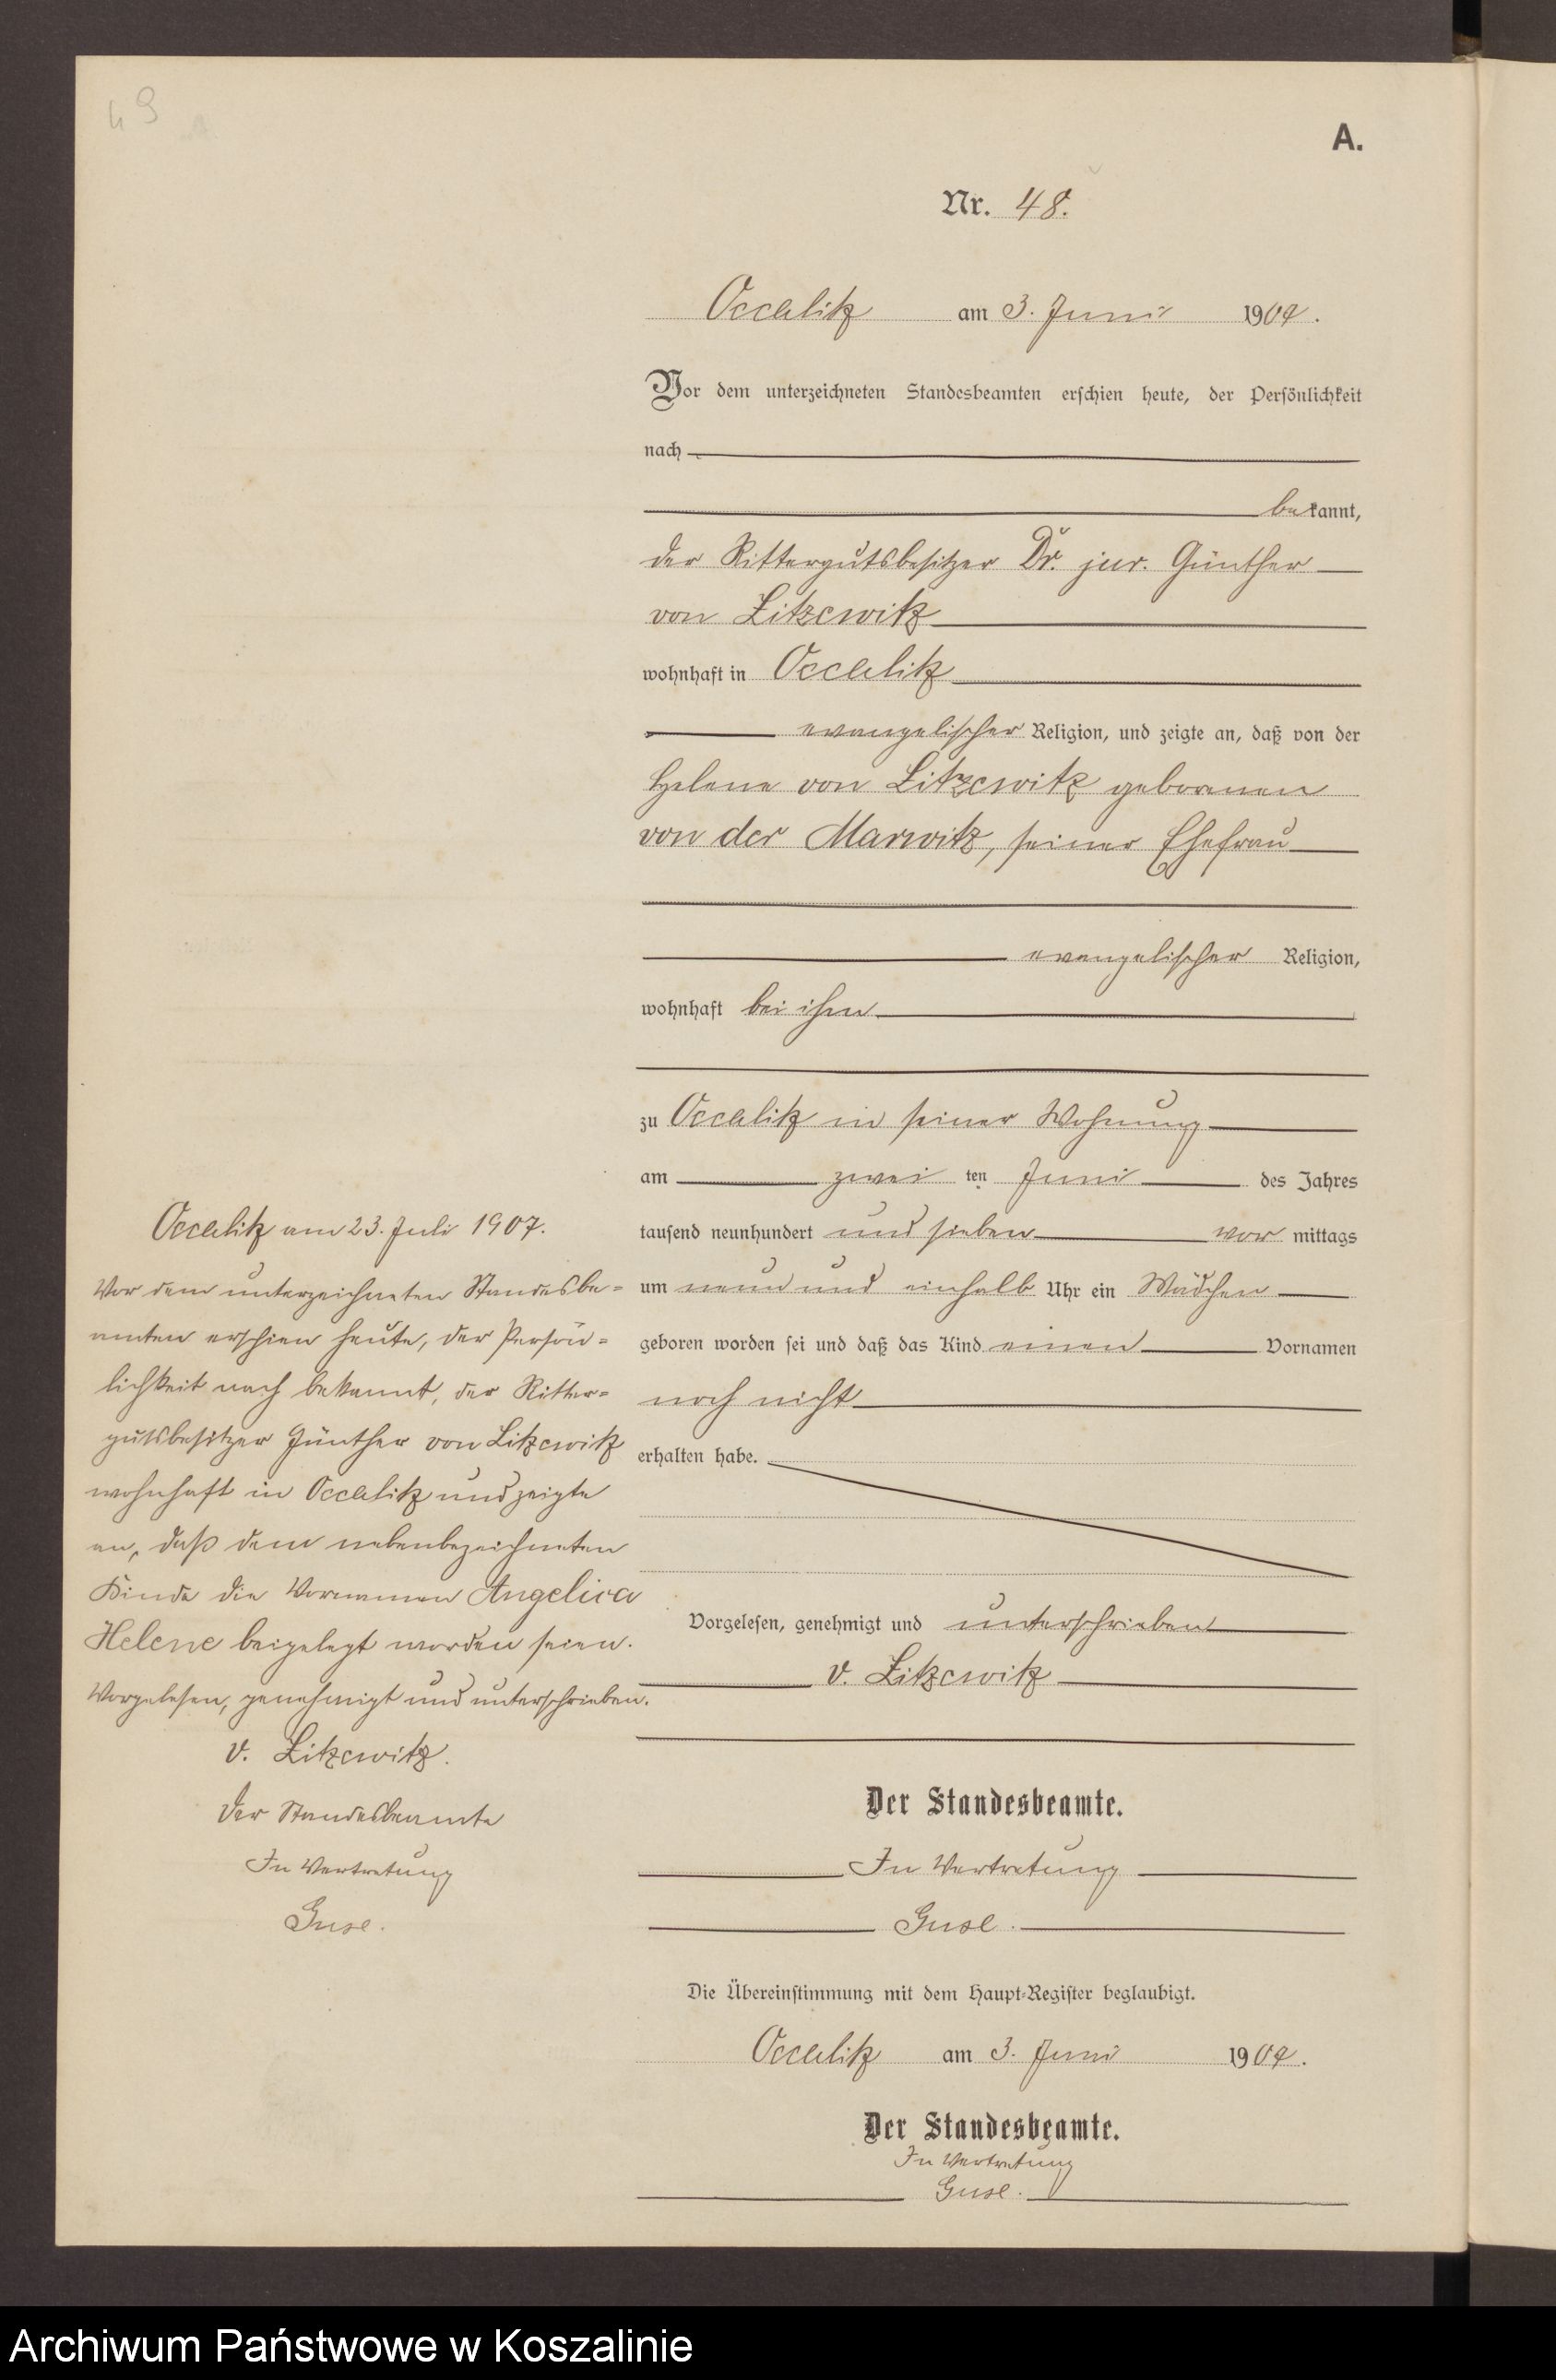 49
A.
Nr. 48.
Occalitz am 3. Juni 1907.
Vor dem unterzeichneten Standesbeamten erschien heute, der Persönlichkeit
nach
bekannt,
der Rittergutsbesitzer Dr. jur. Günther
von Zitzewitz
wohnhaft in Occalitz
evangelischer Religion, und zeigte an, daß von der
Helene von Zitzewitz geborenen
von der Marwitz, seiner Ehefrau
evangelischer Religion,
wohnhaft bei ihm
zu Occalitz in seiner Wohnung
am zwei ten Juni des Jahres
tausend neunhundert und sieben vor mittags
um neun und einhalb Uhr ein Mädchen
geboren worden sei und daß das Kind einen Vornamen
noch nicht
erhalten habe.
Vorgelesen, genehmigt und unterschrieben
v. Zitzewitz
Der Standesbeamte.
In Vertretung
Guse.
Die Übereinstimmung mit dem Haupt-Register beglaubigt.
Occalitz am 3. Juni 1907.
Der Standesbeamte.
In Vertretung
Guse.
Occalitz am 23. Juli 1907.
Vor dem unterzeichneten Standesbe-
amten erschien heute, der Persön-
lichkeit nach bekannt, der Ritter-
gutsbesitzer Günther von Zitzewitz
wohnhaft in Occalitz und zeigte
an, daß dem nebenbezeichneten
Kinde die Vornamen Angelica
Helene beigelegt worden seien.
Vorgelesen, genehmigt und unterschrieben.
v. Zitzewitz.
Der Standesbeamte
In Vertretung
Guse.
Archiwum Państwowe w Koszalinie